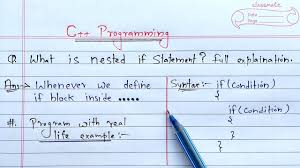 classmate
Date
Page
C++ Programming
Q. What is nested if Statement? full explaination.
Ans→ Whenever we define
if block inside .....
#. Program with real
life example:-
Syntax:- if(Condition)
{
if(Condition)
{
}
}